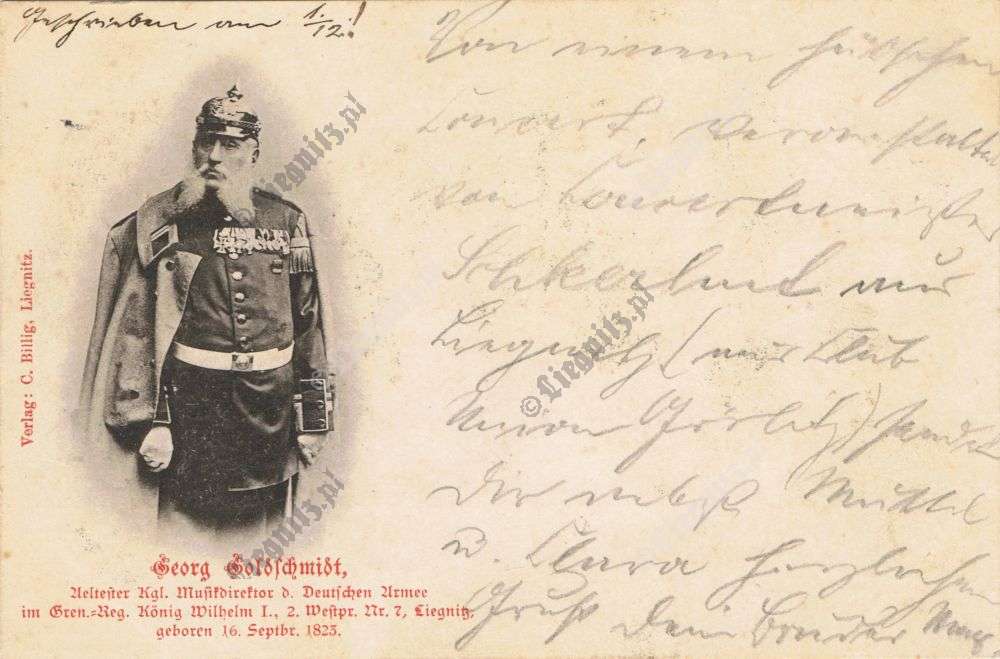 Geschrieben am 1./12.!
Von einem hübschen
Concert, veranstaltet
von Concertmeister
aus
Liegnitz (aus Club
Union Görlitz) sendet
Dir nebst Muttel
u. Clara herzlichen
Gruß Dein Bruder
Verlag: C. Billig, Liegnitz.
Georg Goldschmidt,
Aeltester Kgl. Musikdirektor d. Deutschen Armee
im Gren.-Reg. König Wilhelm I., 2. Westpr. Nr. 7, Liegnitz,
geboren 16. Septbr. 1823.
© Liegnitz.pl
© Liegnitz.pl
© Liegnitz.pl